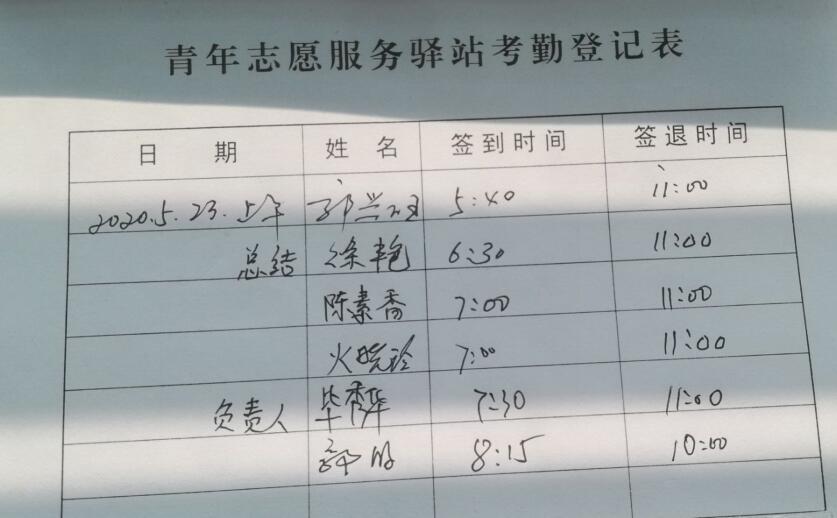 青年志愿服务驿站考勤登记表
日 期 姓 名 签到时间 签退时间
2020.5.23.上午 郭兴 5:40 11:00
总结 徐艳 6:30 11:00
陈素香 7:00 11:00
火晓玲 7:00 11:00
负责人 毕秀华 7:30 11:00
郭 8:15 10:00